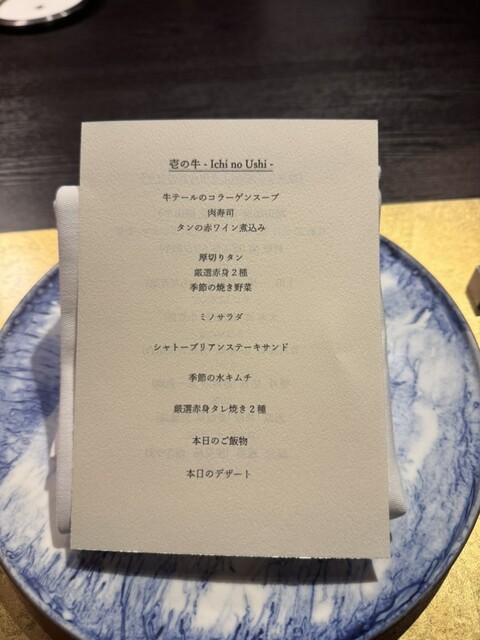 壱の牛 - Ichi no Ushi -
牛テールのコラーゲンスープ
肉寿司
タンの赤ワイン煮込み
厚切りタン
厳選赤身２種
季節の焼き野菜
ミノサラダ
シャトーブリアンステーキサンド
季節の水キムチ
厳選赤身タレ焼き２種
本日のご飯物
本日のデザート